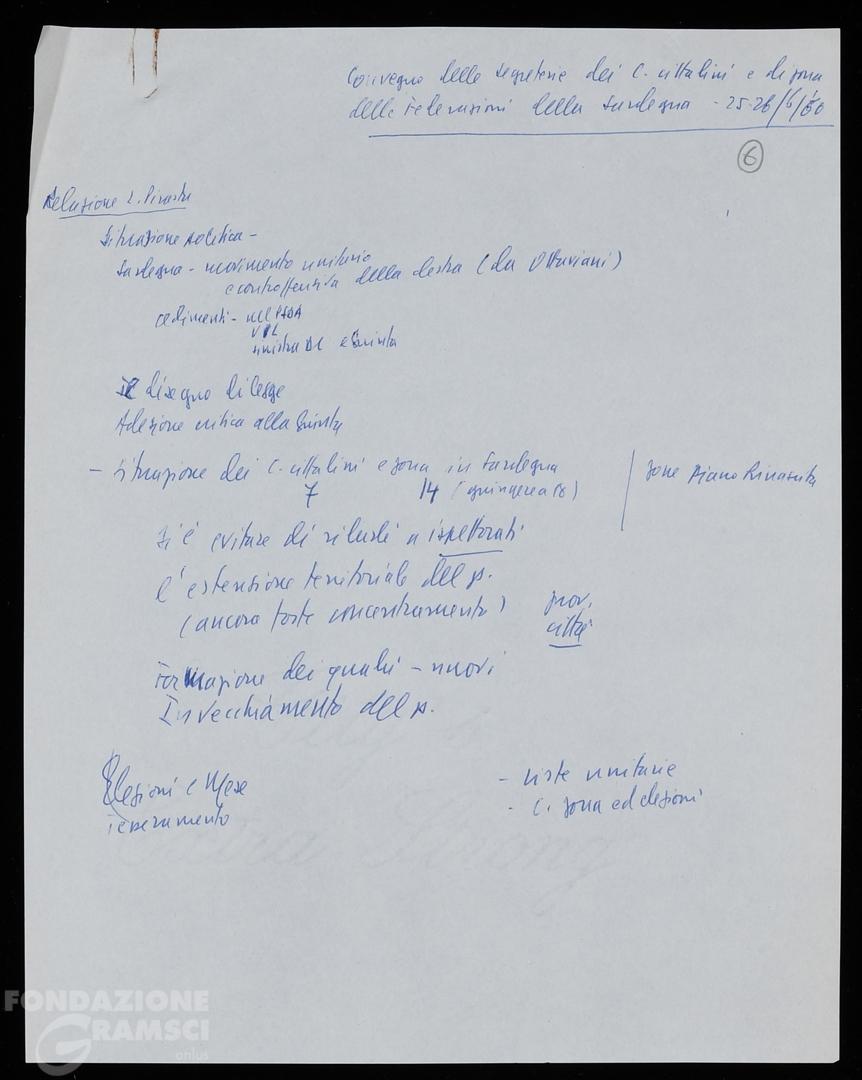 Convegno delle segreterie dei C. cittadini e di zona
delle Federazioni della Sardegna - 25-26/6/60
6
Relazione L. Pirastu
Situazione politica -
Sardegna - movimento unitario
e controffensiva della destra (da Ottaviani)
cedimenti - nel PSdA
sinistra DC e Giunta
Il disegno di legge
Adesione critica alla Giunta
- Situazione dei C. cittadini e zona in Sardegna
7 14
zone Piano Rinascita
Si è evitare di ridurli a ispettorati
L'estensione territoriale del p.
(ancora forte concentramento)
prov.
città
Formazione dei quadri - nuovi
Invecchiamento del p.
Elezioni e Mese
Tesseramento
- liste unitarie
- C. zona ed elezioni
FONDAZIONE
GRAMSCI
onlus